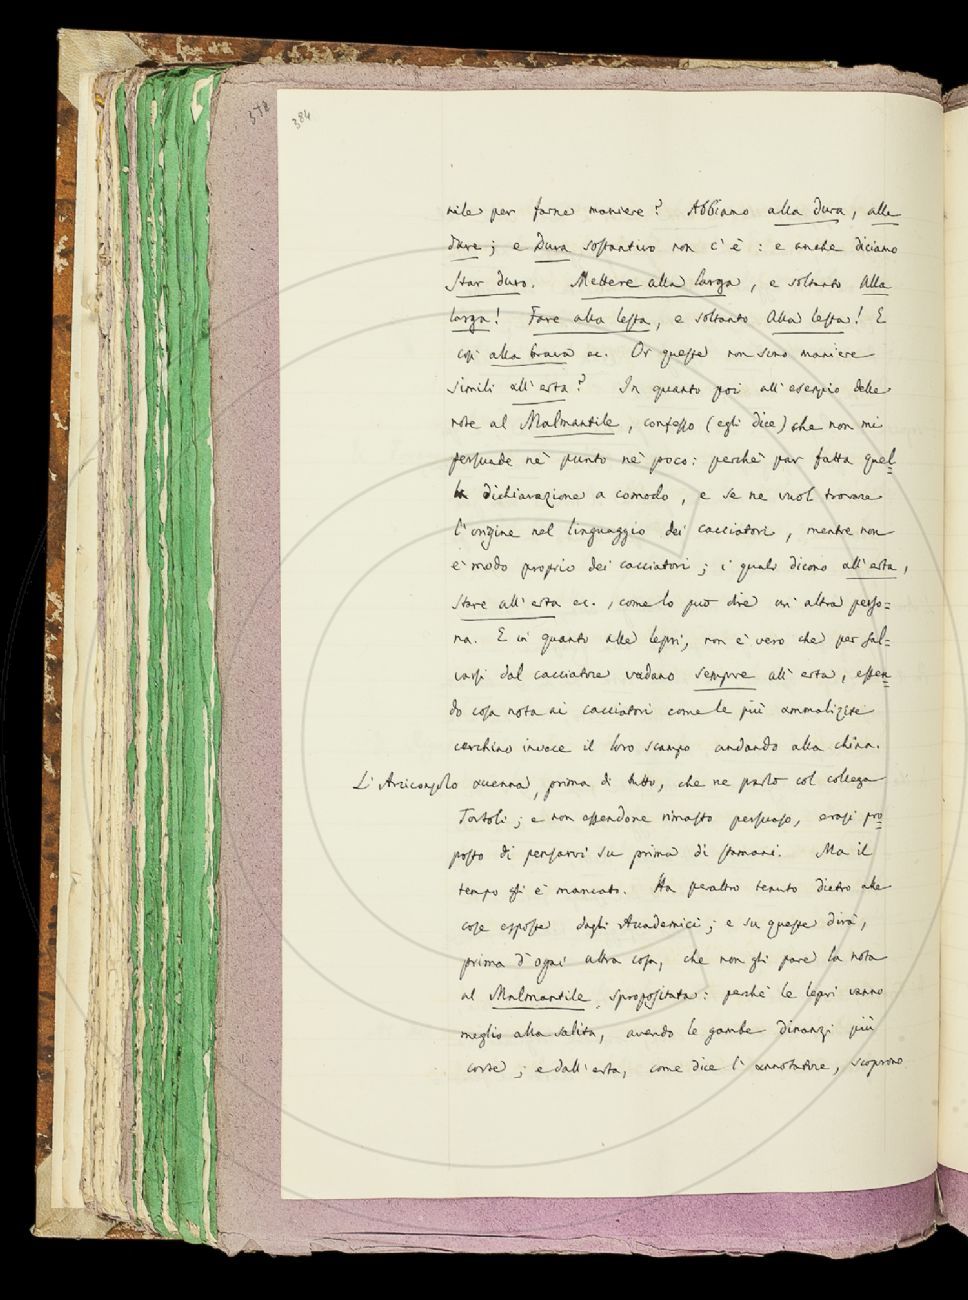 378
384
mile per farne maniere? Abbiamo alla dura, alle
dure; e Dura sostantivo non c'è: e anche diciamo
Star duro. Mettere alla larga, e soltanto Alla
larga! Fare alla lesta, e soltanto Alla lesta! E
così alla brava ec. Or queste non sono maniere
simili all'erta? In quanto poi all'esempio delle
note al Malmantile, confesso (egli dice) che non mi
persuade nè punto nè poco: perchè par fatta quel=
la dichiarazione a comodo, e se ne vuol trovare
l'origine nel linguaggio dei cacciatori, mentre non
è modo proprio dei cacciatori; i quali dicono all'erta,
stare all'erta ec., come lo può dire un'altra perso=
na. E in quanto alle lepri, non è vero che per sal=
varsi dal cacciatore vadano sempre all'erta, essen=
do cosa nota ai cacciatori come le più ammalizite
cerchino invece il loro scampo andando alla china.
L'Arciconsolo accenna, prima di tutto, che ne parlò col collega
Tortoli; e non essendone rimasto persuaso, erasi pro=
posto di pensarvi su prima di stamani. Ma il
tempo gli è mancato. Ha peraltro tenuto dietro alle
cose esposte dagli Accademici; e su queste dirà,
prima d'ogni altra cosa, che non gli pare la nota
al Malmantile spropositata: perchè le lepri vanno
meglio alla salita, avendo le gambe dinanzi più
corte; e dall'erta, come dice l'annotatore, scoprono